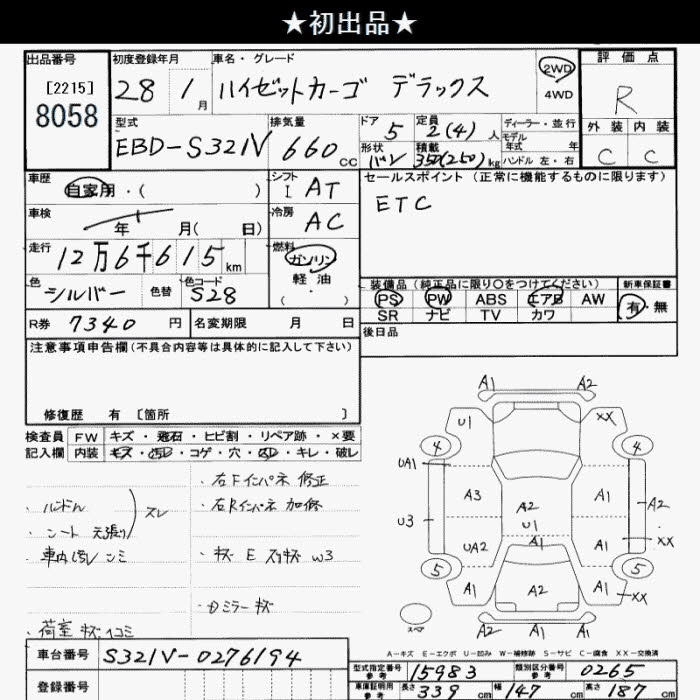 ★初出品★
出品番号
[2215]
8058
初度登録年月
28 1月
車名・グレード
ハイゼットカーゴ デラックス
2WD
4WD
評価点
R
外装 内装
C C
型式
EBD-S321V
排気量
660cc
ドア
5
定員
2(4)人
形状
バン
積載
350(250)kg
ディーラー・並行
モデル年式 年
ハンドル 左・右
車歴
自家用・( )
シフト
I AT
車検
年 月( 日)
冷房
AC
走行
12万6千615km
燃料
ガソリン
軽油
( ・ )
色
シルバー
色替
色コード
S28
R券 7340円
名変期限 月 日
セールスポイント (正常に機能するものに限ります)
ETC
装備品 (純正品に限り〇をつけてください)
新車保証書
PS PW ABS エアB AW
有・無
SR ナビ TV カワ
後日品
注意事項申告欄(不具合内容等は具体的に記入して下さい)
修復歴 有 [箇所 ]
検査員記入欄
FW キズ・飛石・ヒビ割・リペア跡・×要
内装 キズ・汚レ・コゲ・穴・スレ・キレ・破レ
・ハンドル
・シート
スレ
・車内汚レ
・荷室 キズ
・右Fインパネ 修正
・右Rインパネ 加修
・キズ E W3
・Dミラー キズ
A1 A2
U1 XX
4 4
UA1
A3 A2 A1
U3 U1 A2
A1
UA2 A1 XX
5 5
A1 A2 A1 XX
スペア
A2 A1 A1
A-キズ E-エクボ U-凹み W-補修跡 S-サビ C-腐食 XX-交換済
車台番号 S321V-0276194
登録番号
型式指定番号 参考 15983
類別区分番号 参考 0265
車庫証明用 参考 長さ 339cm 幅 147cm 高さ 187cm